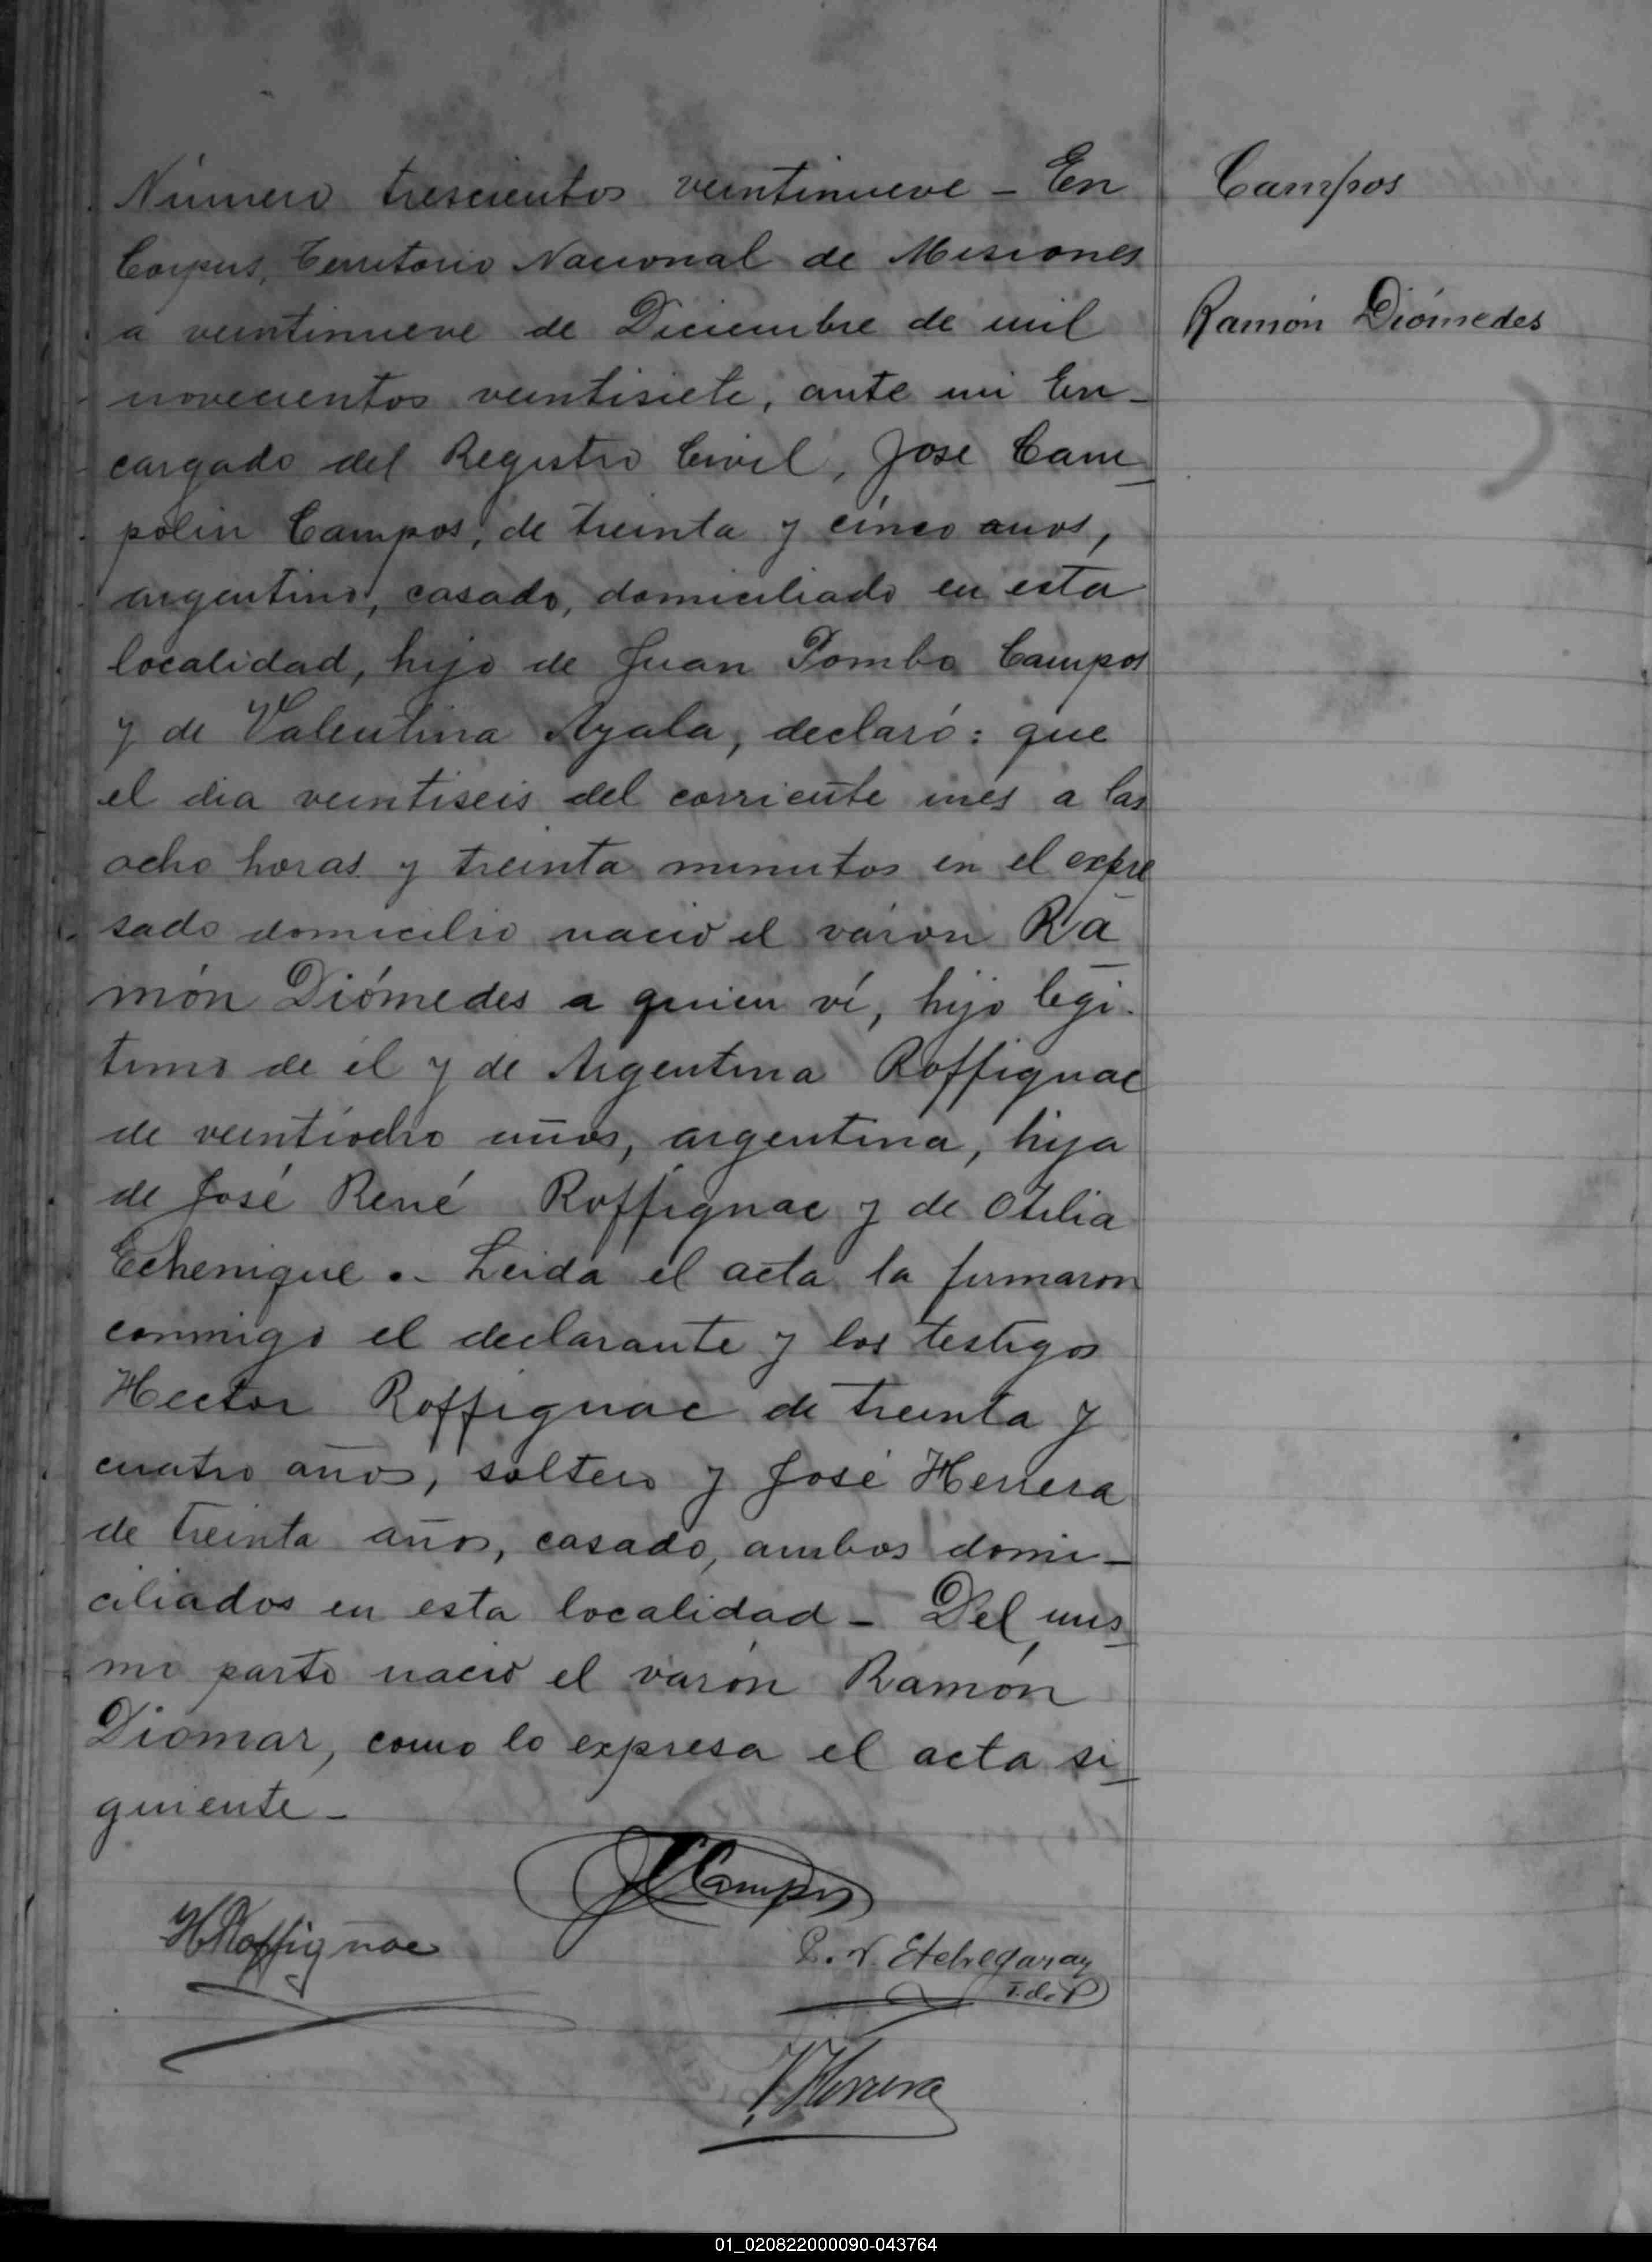 Número trescientos veintinueve - En
Campos
Corpus, Territorio Nacional de Misiones
a veintinueve de Diciembre de mil
Ramón Diómedes
novecientos veintisiete, ante mi En-
cargado del Registro Civil, José Cam-
polin Campos, de treinta y cinco años,
argentino, casado, domiciliado en esta
localidad, hijo de Juan Pombo Campos
y de Valentina Ayala, declaró: que
el dia veintiseis del corriente mes a las
ocho horas y treinta minutos en el expre
sado domicilio nació el varon Ra
món Diómedes a quien ví, hijo legi-
timo de él y de Argentina Roffignac
de veintiocho años, argentina, hija
de José René Roffignac y de Otilia
Echenique .- Leida el acta la firmaron
conmigo el declarante y los testigos
Hector Roffignac de treinta y
cuatro años, soltero y José Herrera
de treinta años, casado, ambos domi-
ciliados en esta localidad - Del mis-
mo parto nació el varón Ramón
Diomar, como lo expresa el acta si-
guiente -
Campos
HRoffignac
P. N. Etchegaray
J. de P
J Herrera
01_020822000090-043764